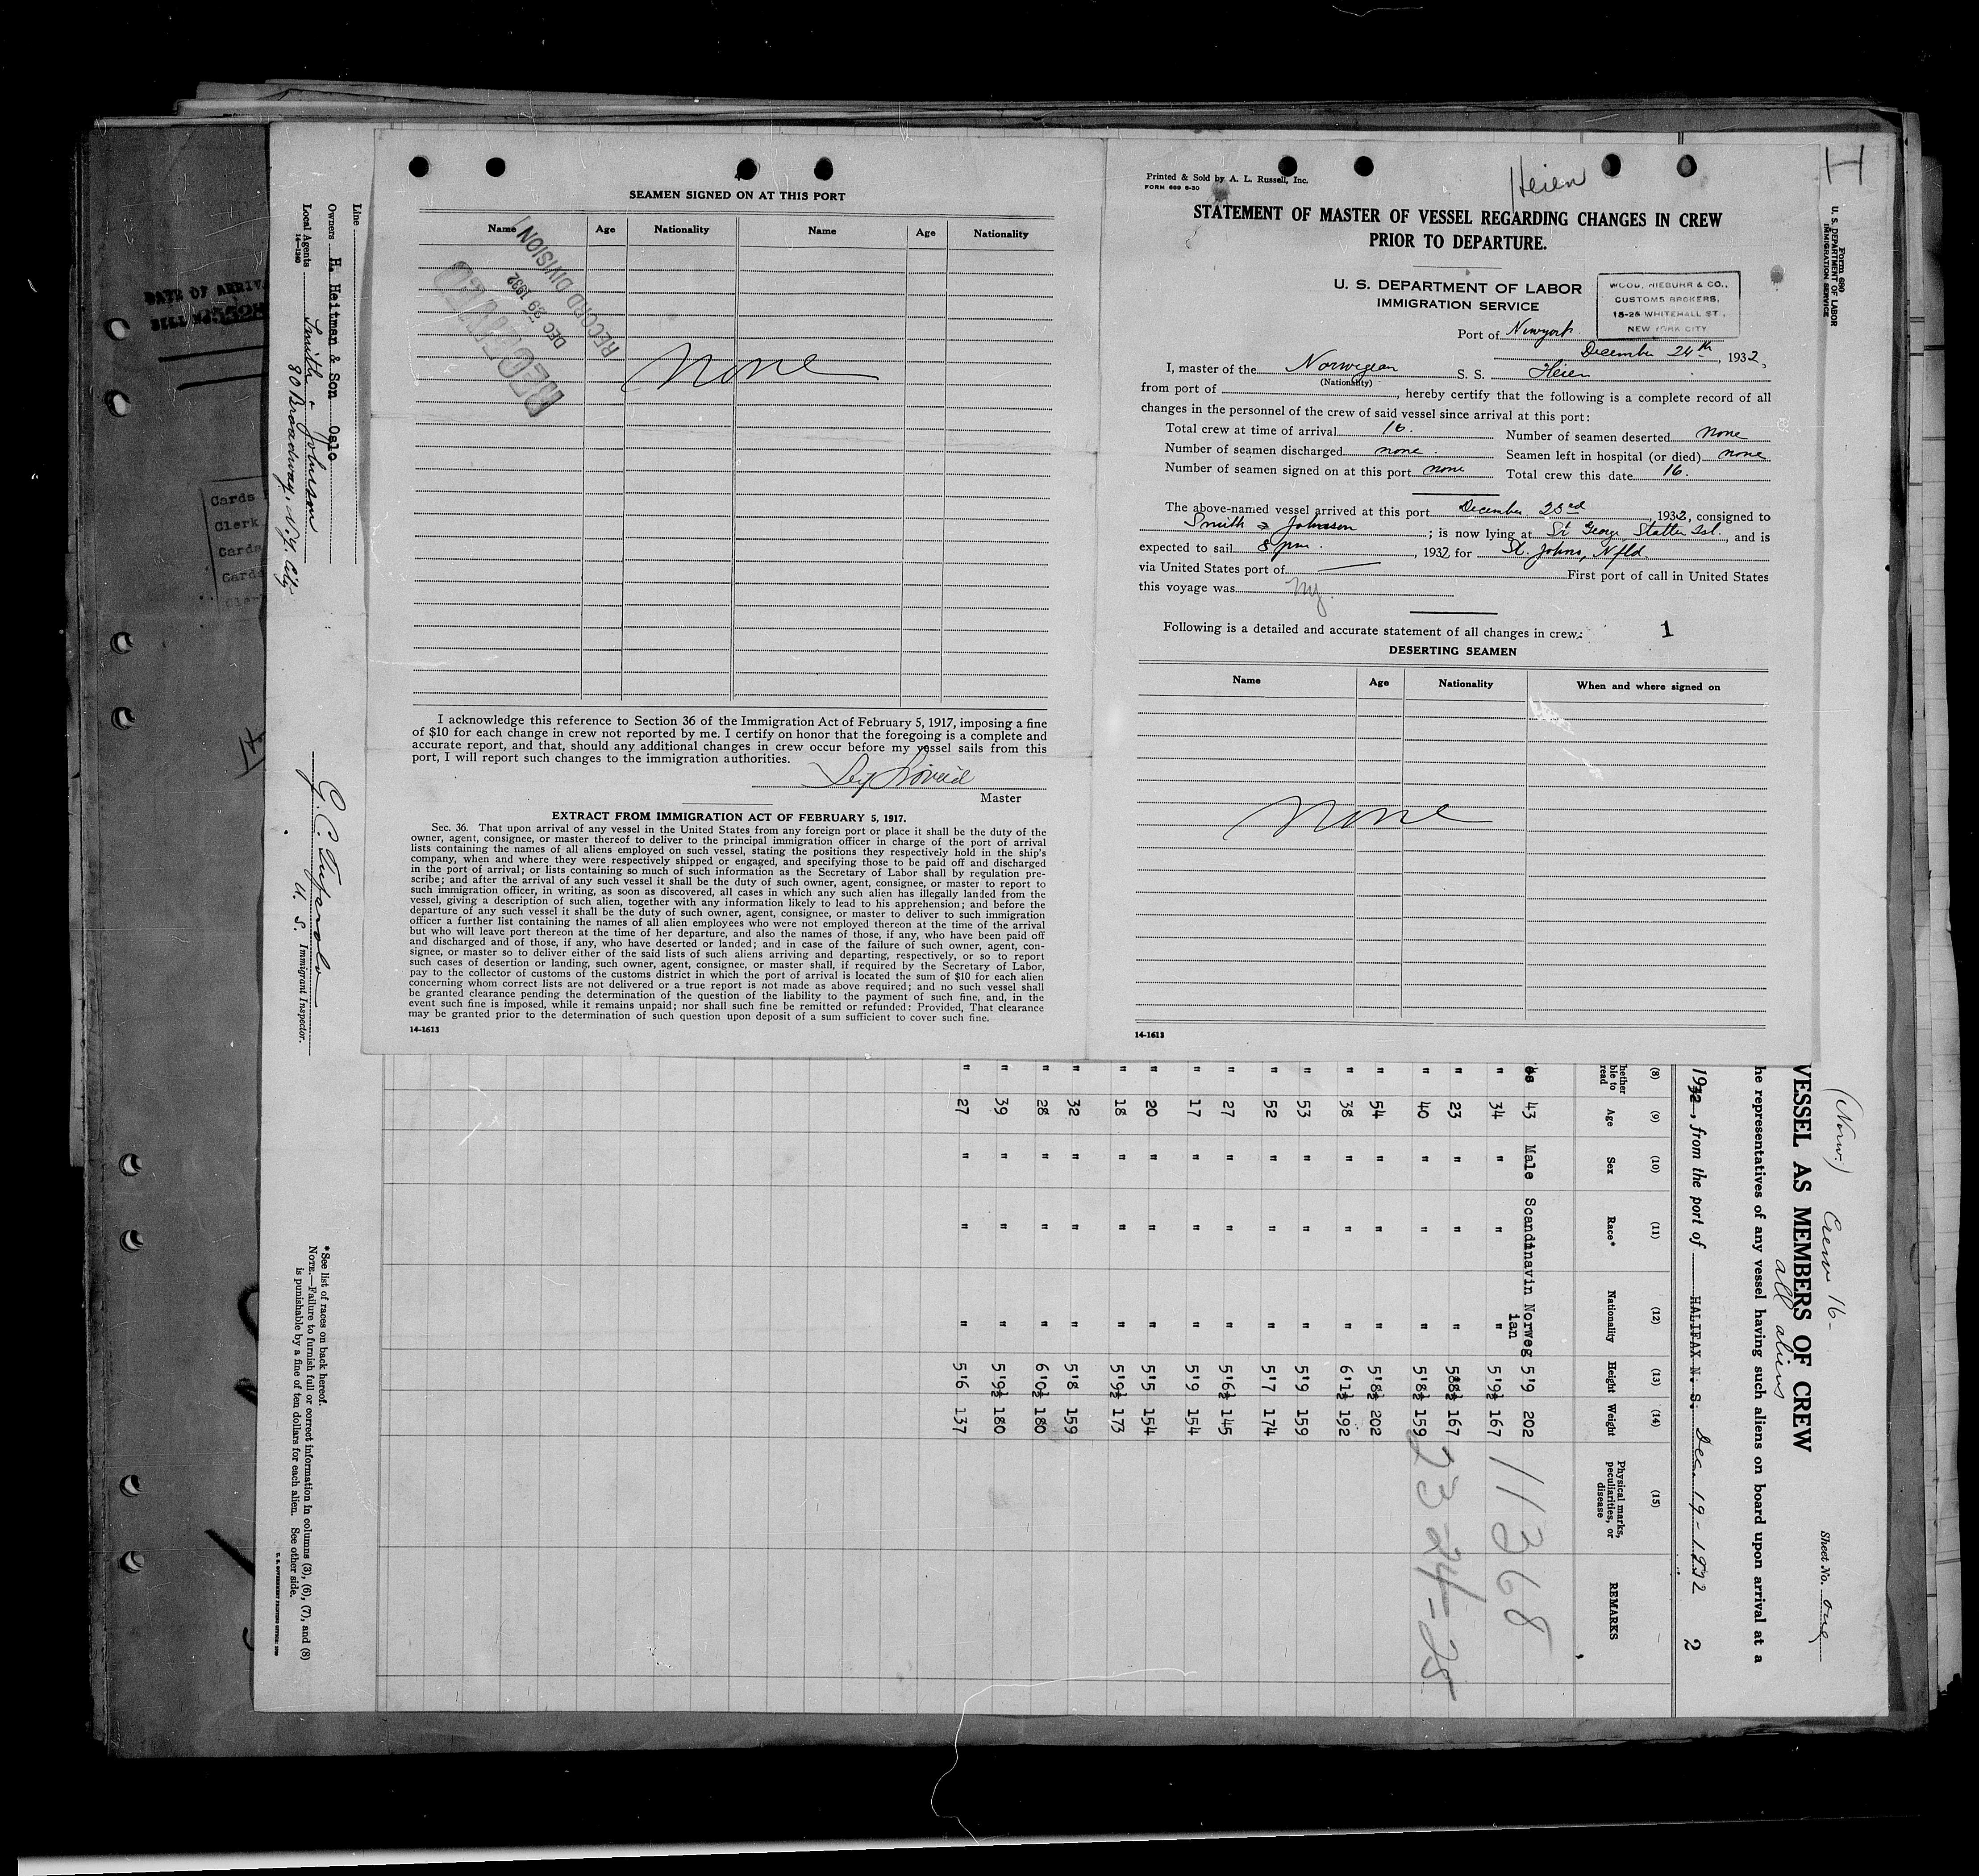 SEAMEN SIGNED ON AT THIS PORT
Name Age Nationality Name Age Nationality
RECEIVED
DEC 29 1932
RECORD DIVISION
None
I acknowledge this reference to Section 36 of the Immigration Act of February 5, 1917, imposing a fine
of $10 for each change in crew not reported by me. I certify on honor that the foregoing is a complete and
accurate report, and that, should any additional changes in crew occur before my vessel sails from this
port, I will report such changes to the immigration authorities.
Master
EXTRACT FROM IMMIGRATION ACT OF FEBRUARY 5, 1917.
Sec. 36. That upon arrival of any vessel in the United States from any foreign port or place it shall be the duty of the
owner, agent, consignee, or master thereof to deliver to the principal immigration officer in charge of the port of arrival
lists containing the names of all aliens employed on such vessel, stating the positions they respectively hold in the ship's
company, when and where they were respectively shipped or engaged, and specifying those to be paid off and discharged
in the port of arrival; or lists containing so much of such information as the Secretary of Labor shall by regulation pre-
scribe; and after the arrival of any such vessel it shall be the duty of such owner, agent, consignee, or master to report to
such immigration officer, in writing, as soon as discovered, all cases in which any such alien has illegally landed from the
vessel, giving a description of such alien, together with any information likely to lead to his apprehension; and before the
departure of any such vessel it shall be the duty of such owner, agent, consignee, or master to deliver to such immigration
officer a further list containing the names of all alien employees who were not employed thereon at the time of the arrival
but who will leave port thereon at the time of her departure, and also the names of those, if any, who have been paid off
and discharged and of those, if any, who have deserted or landed; and in case of the failure of such owner, agent, con-
signee, or master so to deliver either of the said lists of such aliens arriving and departing, respectively, or so to report
such cases of desertion or landing, such owner, agent, consignee, or master shall, if required by the Secretary of Labor,
pay to the collector of customs of the customs district in which the port of arrival is located the sum of $10 for each alien
concerning whom correct lists are not delivered or a true report is not made as above required; and no such vessel shall
be granted clearance pending the determination of the question of the liability to the payment of such fine, and, in the
event such fine is imposed, while it remains unpaid; nor shall such fine be remitted or refunded: Provided, That clearance
may be granted prior to the determination of such question upon deposit of a sum sufficient to cover such fine.
14-1613
Printed & Sold by A. L. Russell, Inc.
FORM 689 6-30
Heien
H
STATEMENT OF MASTER OF VESSEL REGARDING CHANGES IN CREW
PRIOR TO DEPARTURE.
U. S. DEPARTMENT OF LABOR
IMMIGRATION SERVICE
WOOD, NIEBUHR & CO.,
CUSTOMS BROKERS,
15-25 WHITEHALL ST.,
NEW YORK CITY
Port of Newyork
December 24th, 1932,
I, master of the Norwegian S. S. Heien
(Nationality)
from port of , hereby certify that the following is a complete record of all
changes in the personnel of the crew of said vessel since arrival at this port:
Total crew at time of arrival 16. Number of seamen deserted none
Number of seamen discharged none. Seamen left in hospital (or died) none
Number of seamen signed on at this port none Total crew this date 16.
The above-named vessel arrived at this port December 23rd, 1932, consigned to
Smith & Johnson; is now lying at St George Statten Isl., and is
expected to sail 8 pm., 1932 for St. Johns, Nfld
via United States port of — First port of call in United States
this voyage was Ny.
Following is a detailed and accurate statement of all changes in crew: 1
DESERTING SEAMEN
Name Age Nationality When and where signed on
None
14-1613
Line
Owners H. Heitman & Son Oslo
Local Agents Smith & Johnson
14-1240
80 Broadway, N.Y. City
U. S. Immigrant Inspector.
*See list of races on back hereof.
NOTE.—Failure to furnish full or correct information in columns (3), (6), (7), and (8)
is punishable by a fine of ten dollars for each alien. See other side.
U. S. GOVERNMENT PRINTING OFFICE
Form 680
U. S. DEPARTMENT OF LABOR
IMMIGRATION SERVICE
(Norw.) Crew 16-
all aliens
Sheet No. one
VESSEL AS MEMBERS OF CREW
he representatives of any vessel having such aliens on board upon arrival at a
1932, from the port of HALIFAX N. S. Dec. 19-1932 2
(8) (9) (10) (11) (12) (13) (14) (15)
hether ble to read Age Sex Race* Nationality Height Weight Physical marks, peculiarities, or disease REMARKS
43 Male Scandinavin Norweg ian 5'9 202
" 34 " " " 5'9½ 167
" 23 " " " 5'8½ 167
" 40 " " " 5'8½ 159
" 54 " " " 5'8½ 202
" 38 " " " 6'1½ 192
" 53 " " " 5'9 159
" 52 " " " 5'7 174
" 27 " " " 5'6½ 145
" 17 " " " 5'9 154
" 20 " " " 5'5 154
" 18 " " " 5'9½ 173
" 32 " " " 5'8 159
" 28 " " " 6'0½ 180
" 39 " " " 5'9½ 180
" 27 " " " 5'6 137
11368
23 24-25
DATE OF ARRIV
Cards
Clerk
Cards
Cards
Clerk